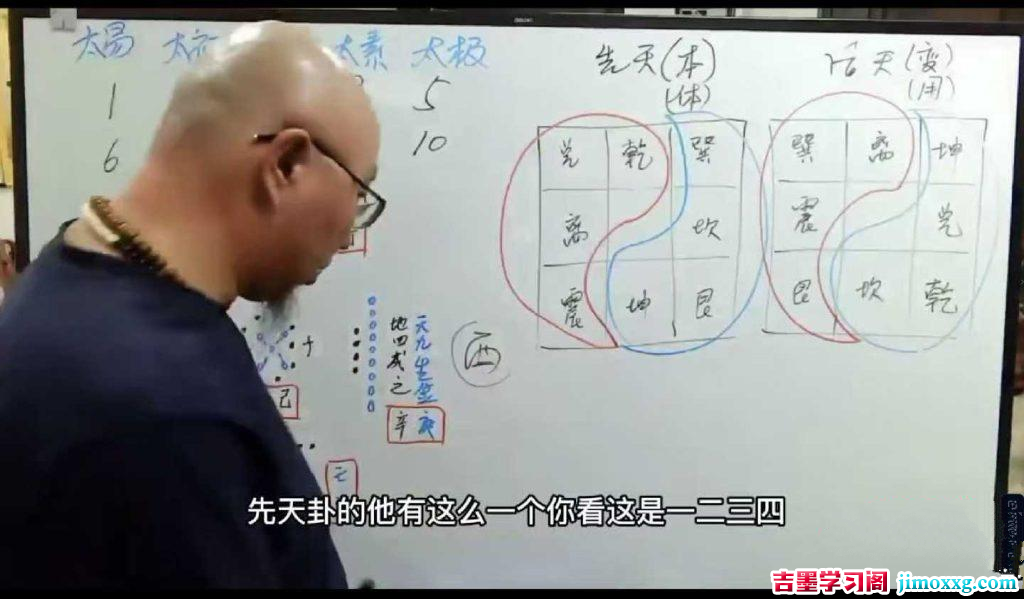 太易 太 太素 太极
1 5
6 10
先天(本)
(体)
后天(变)
(用)
兑 乾 巽
离 坎
震 坤 艮
巽 离 坤
震 兑
艮 坎 乾
十
己
地四成之
天九生金
辛
西
先天卦的他有这么一个你看这是一二三四
吉墨学习阁 jimoxxg.com